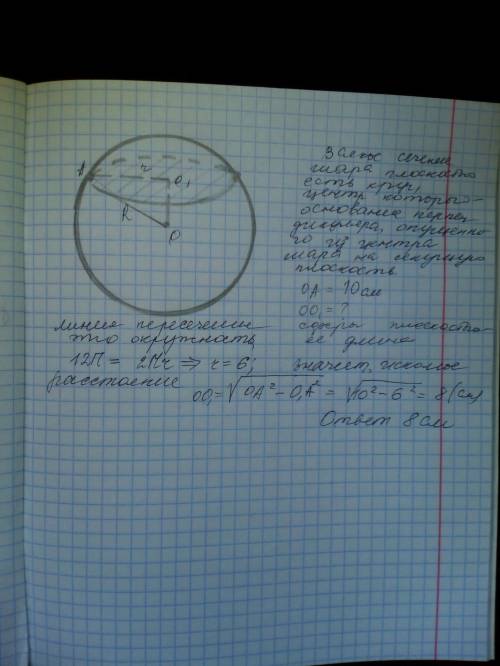 A
r
O₁
R
O
сечение
шара плоскостью
есть круг,
центр которого-
основание перпен-
дикуляра, опущенно-
го из центра
шара на секущую
плоскость
OA = 10 см
OO₁ = ?
линия пересечения сферы плоскостью-
это окружность, ее длина
12П = 2Пr ⇒ r = 6; значит, искомое
расстояние OO₁ = √OA² - O₁A² = √10² - 6² = 8 (см)
Ответ 8 см